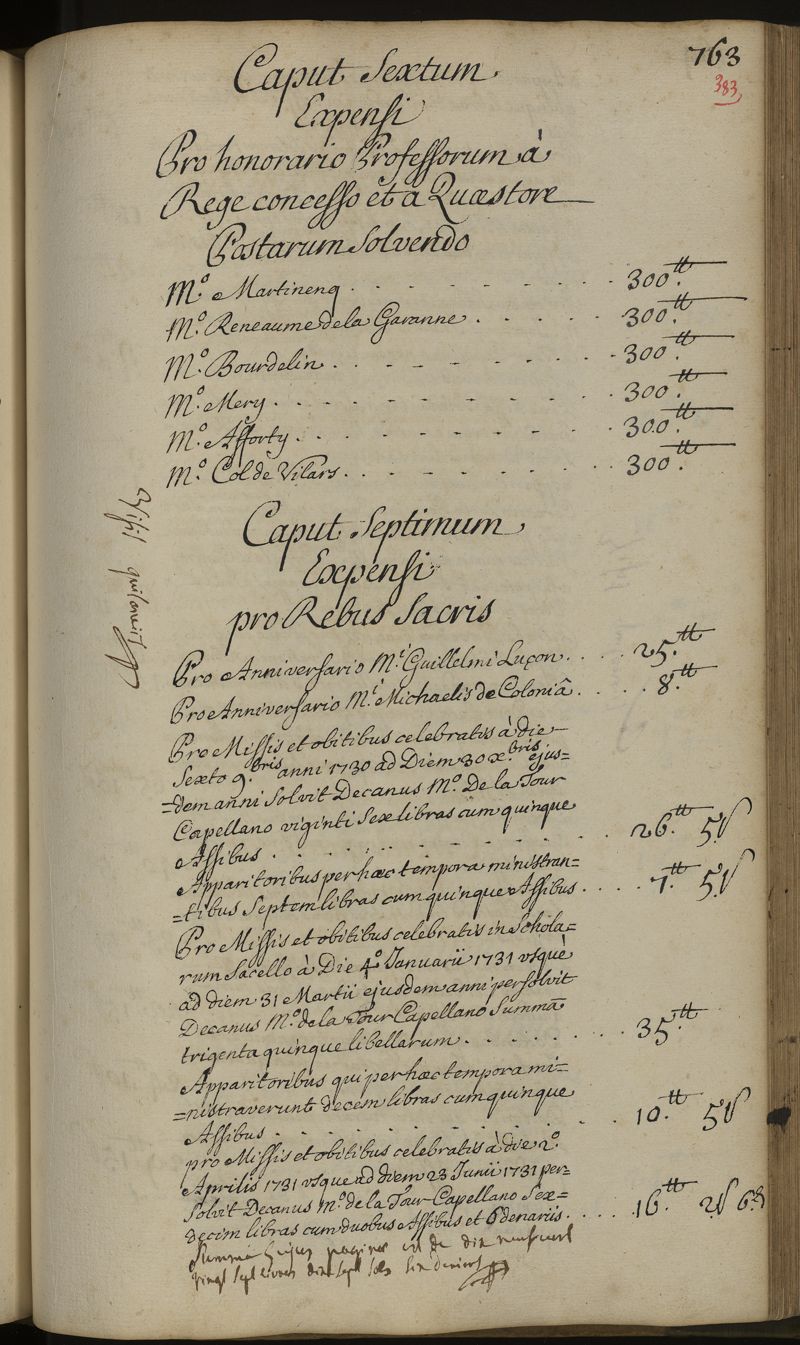 763
383
Caput Sextum
Expensi
Pro honorario Professorum à
Rege concesso et à Quæstore
Postarum Solvendo
M.º Martinenq . . . . . . . . 300.tt
M.º Reneaume de la Garanne . . . . . 300.tt
M.º Bourdelin . . . . . . . . . 300.tt
M.º Mery . . . . . . . . . 300.tt
M.º Afforty . . . . . . . . 300.tt
M.º Col de Vilars . . . . . . . . 300.tt
Nihil
Caput Septimum
Expensi
pro Rebus Sacris
Pro Anniversario M.i Guillelmi Luçon . . . . 25.tt
Pro Anniversario M.i Michaelis de Coloniâ . . . . 8.tt
Pro Missis et obitibus celebratis à die
Sexto 9.bris anni 1730 ad Diem 30 x.bris ejus=
=dem anni Solvit Decanus M.º De la Tour
Capellano viginti Sex libras cum quinque
Assibus . . . . . . . . . . 26.tt 5ſ
Apparitoribus per hæc tempora ministran=
=tibus Septem libras cum quinque Assibus . . . . 7.tt 5ſ
Pro Missis et obitibus celebratis in Schola=
rum Sacello à Die 4º Januarii 1731 usquè
ad diem 31 Martii ejusdem anni persolvit
Decanus M.º de la Tour Capellano Summã
trigenta quinque libellarum . . . . . . . . 35.tt
Apparitoribus qui per hæc tempora mi=
=nistraverunt decem libras cum quinque
Assibus . . . . . . . . . . 10.tt 5ſ
pro Missis et obitibus celebratis à die 2º
Aprilis 1731 usque ad diem 23 Junii 1731 per=
Solvit Decanus M.º de la Tour Capellano Sex=
decim libras cum duobus Assibus et 6 denariis . . . . 16.tt 2ſ 6d
Summa hujus paginæ est de dix neuf cent
vingt sept livres dix sept sols six deniers